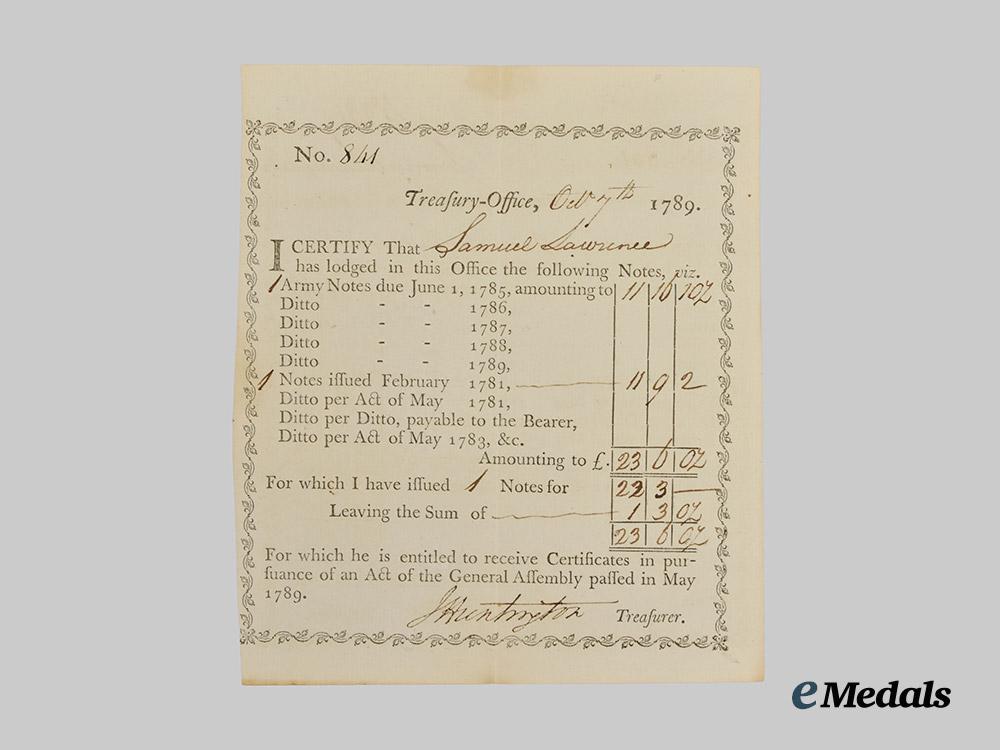 No. 841
Treaſury-Office, Oct 7th 1789.
I CERTIFY That Samuel Lawrence
has lodged in this Office the following Notes, viz.
1 Army Notes due June 1, 1785, amounting to 11 16 10½
Ditto - - 1786,
Ditto - - 1787,
Ditto - - 1788,
Ditto - - 1789,
1 Notes iſſued February 1781, 11 9 2
Ditto per Act of May 1781,
Ditto per Ditto, payable to the Bearer,
Ditto per Act of May 1783, &c.
Amounting to £. 23 6 0½
For which I have iſſued 1 Notes for 22 3 —
Leaving the Sum of 1 3 0½
23 6 0½
For which he is entitled to receive Certificates in pur-
ſuance of an Act of the General Aſſembly paſſed in May
1789.
J Huntington Treaſurer.
eMedals